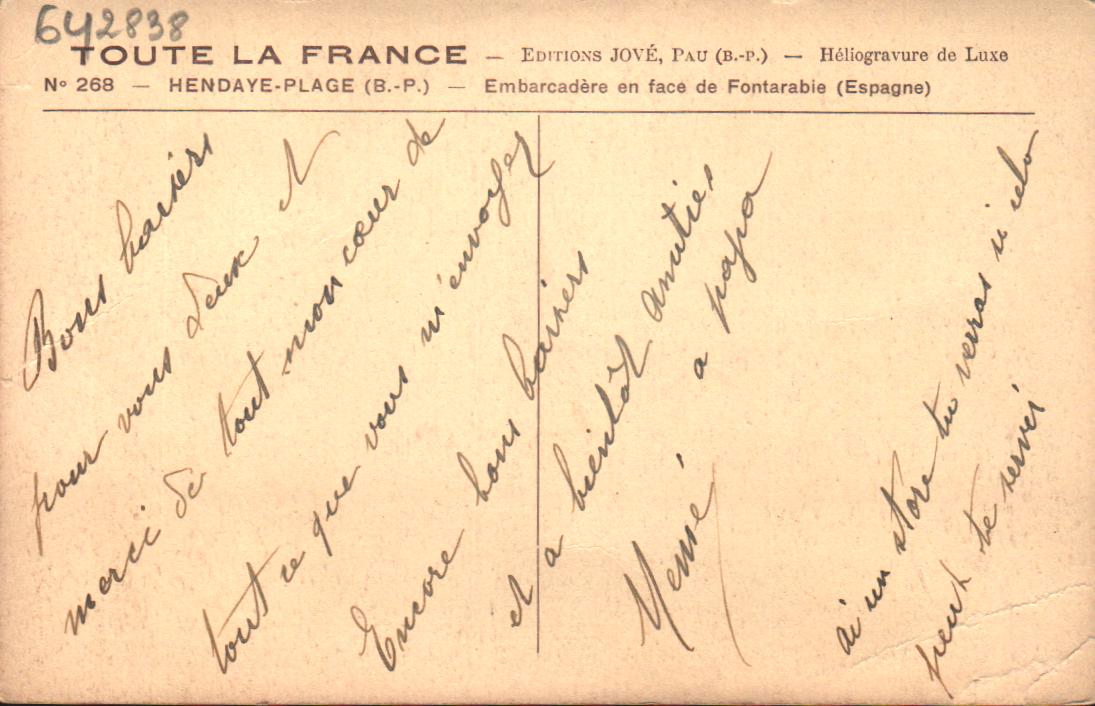 642838
TOUTE LA FRANCE — EDITIONS JOVÉ, PAU (B.-P.) — Héliogravure de Luxe
Nº 268 — HENDAYE-PLAGE (B.-P.) — Embarcadère en face de Fontarabie (Espagne)
Bons baisers
pour vous deux et
merci de tout mon cœur de
tout ce que vous m'envoyez
Encore bons baisers
et a bientôt amitiés
a papa
ai un store tu verras si cela
peut te servir